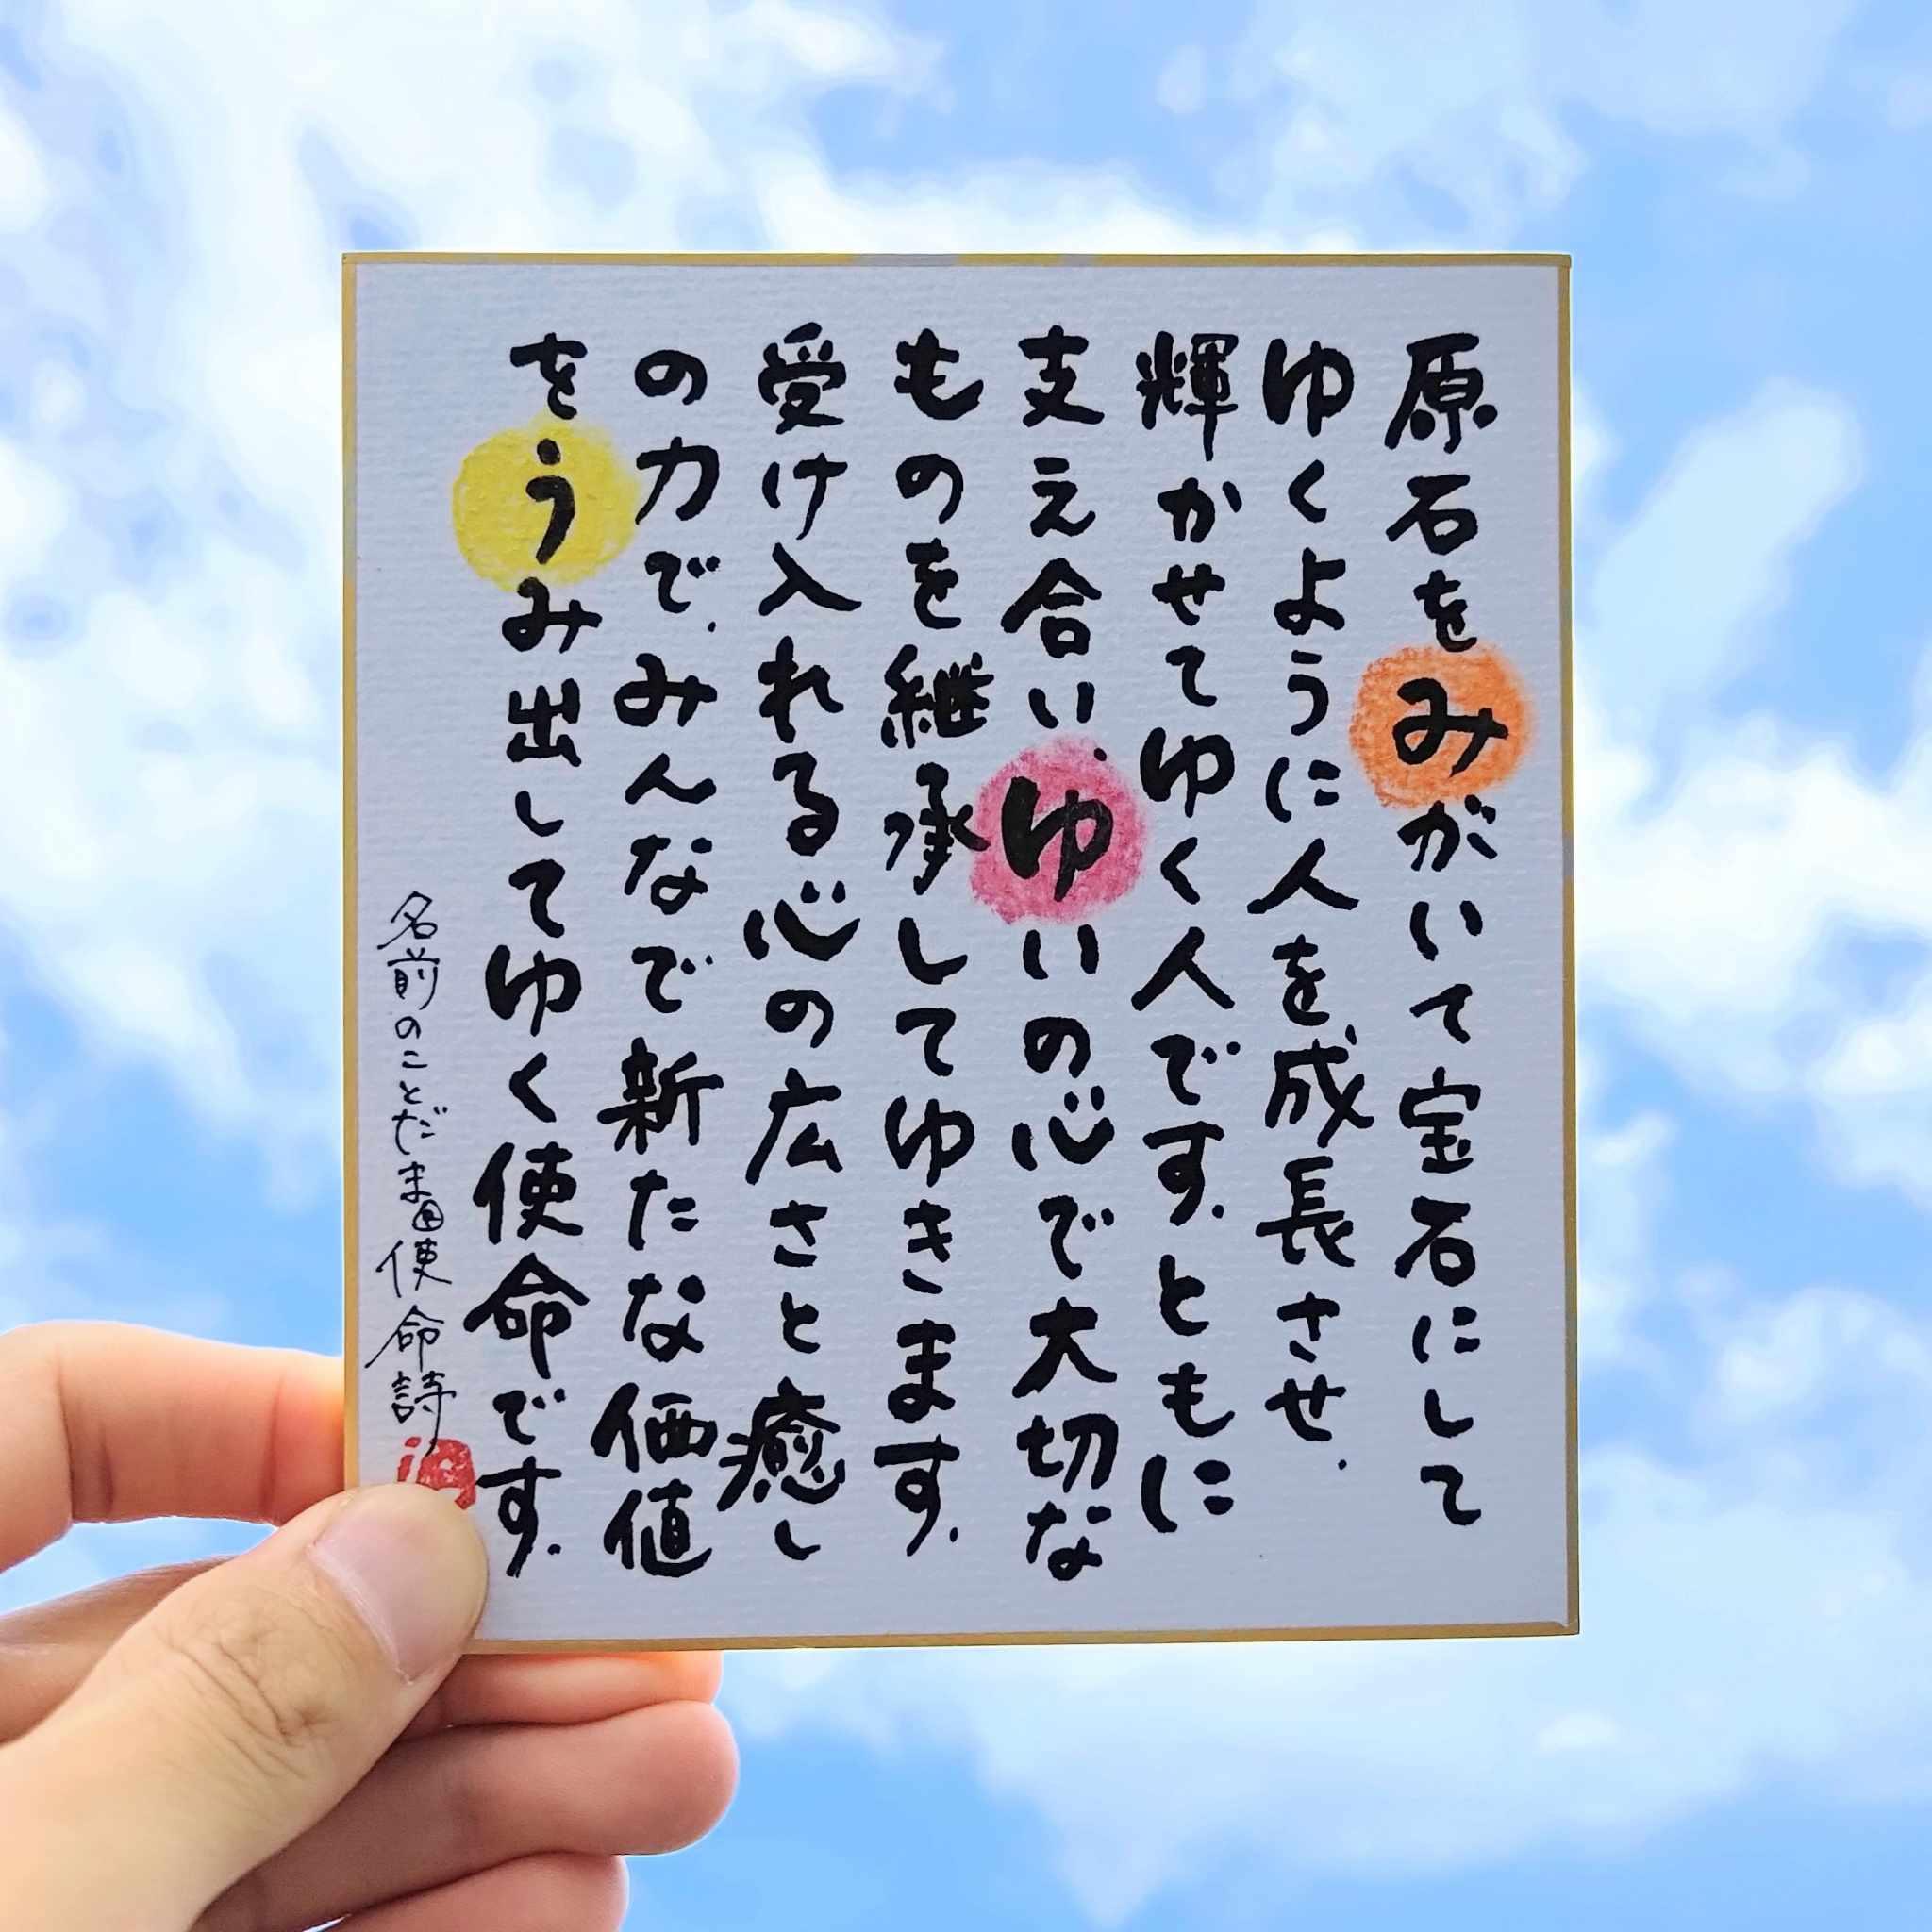 原石をみがいて宝石にして
ゆくように人を成長させ、
輝かせてゆく人です。ともに
支え合い、ゆいの心で大切な
ものを継承してゆきます。
受け入れる心の広さと癒し
の力で、みんなで新たな価値
をうみ出してゆく使命です。
名前のことだま®使命詩